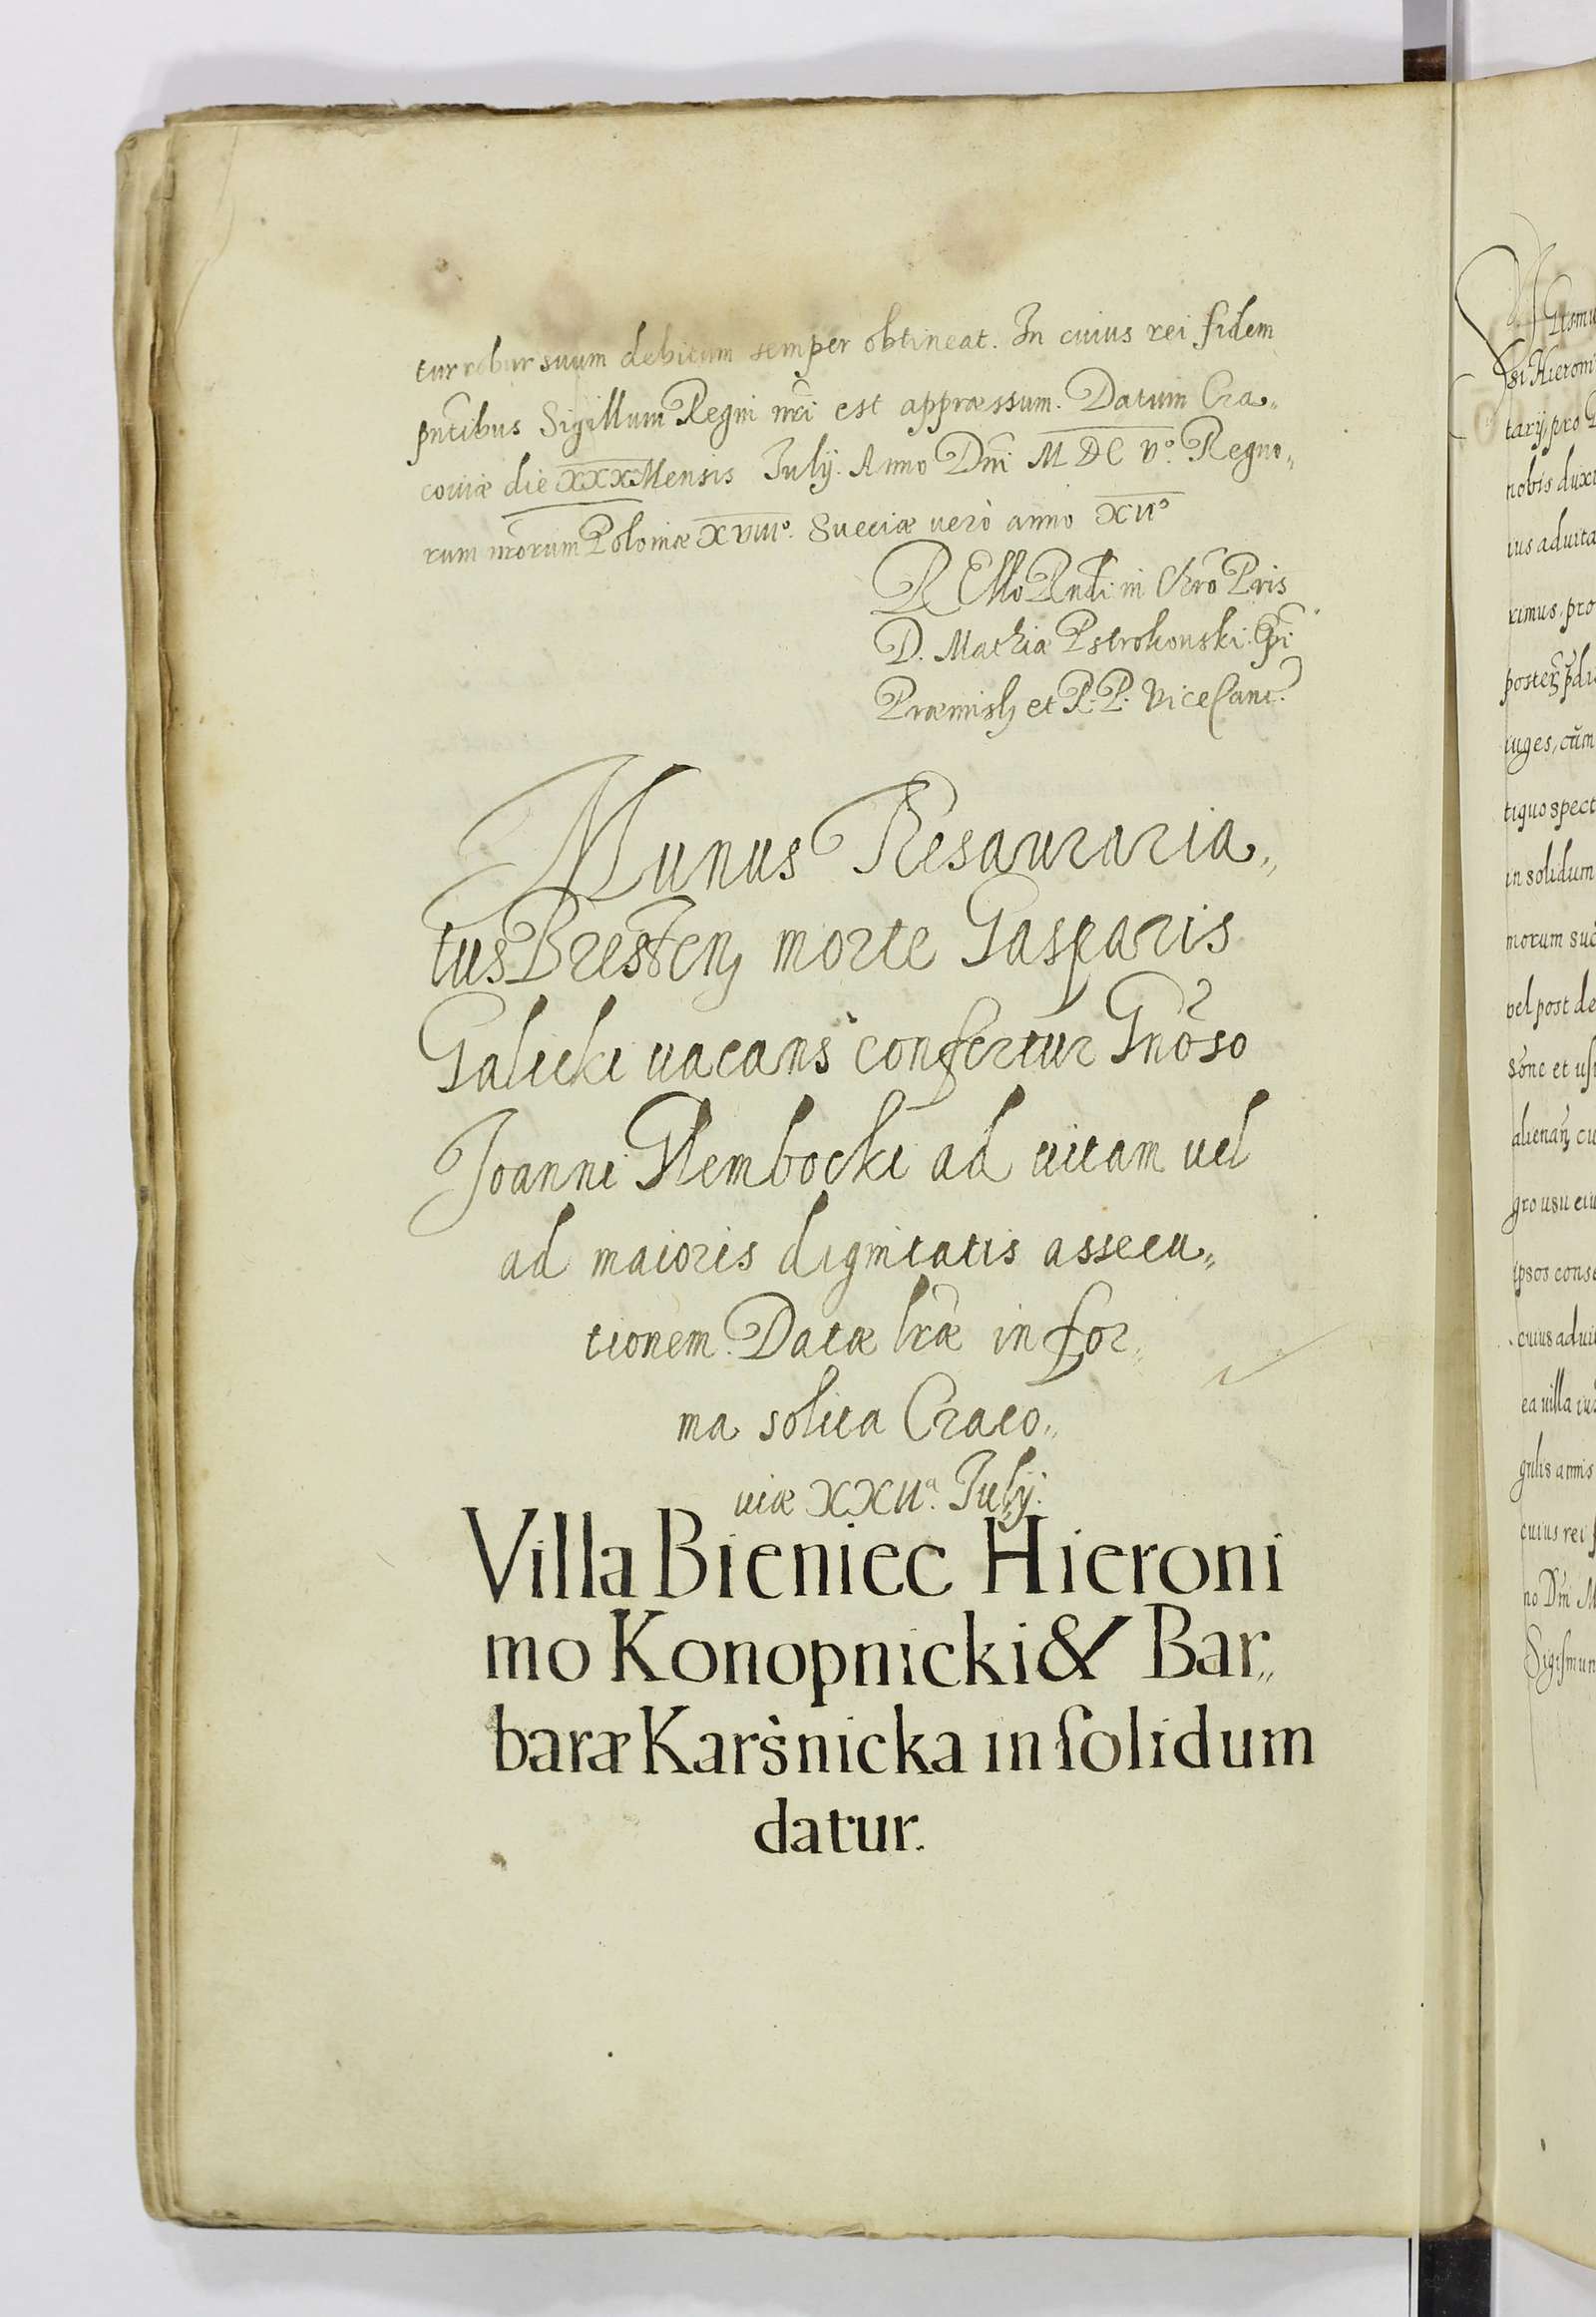 tur robur suum debitum semper obtineat. In cuius rei fidem
pñtibus Sigillum Regni nr̃i est appræssum. Datum Cra„
coviæ die XXX Mensis Julij. Anno Dñi M D C Vº. Regno„
rum nr̃orum Poloniæ XVIIIº. Sueciæ uerò anno XIIº
R Illo Rndi in Chro Pris
D. Mathiæ Pstrokonski. Epi
Præmisl et R: P: ViceCanc.
Munus Tesauraria„
tus Bresten morte Gasparis
Galicki uacans confertur Gnõso
Joanni Glembocki ad uitam uel
ad maioris dignitatis assecu„
tionem. Datæ lr̃æ in for„
ma solita Craco„
uiæ XXIIª. Julij.
Villa Bieniec Hieroni
mo Konopnicki & Bar„
baræ Karśnicka in ſolidum
datur.
Sigismu
si Hieroni
tarij, pro
nobis duxi
ius aduita
ximus, pro
iuges, cũm
tiquo spect
in solidum
morum suc
vel post de
sõne et usi
gro usu eiu
ipsos conse
cuius adui
ea uilla
gulis annis
cuius rei f
no Dñi M
Sigismun